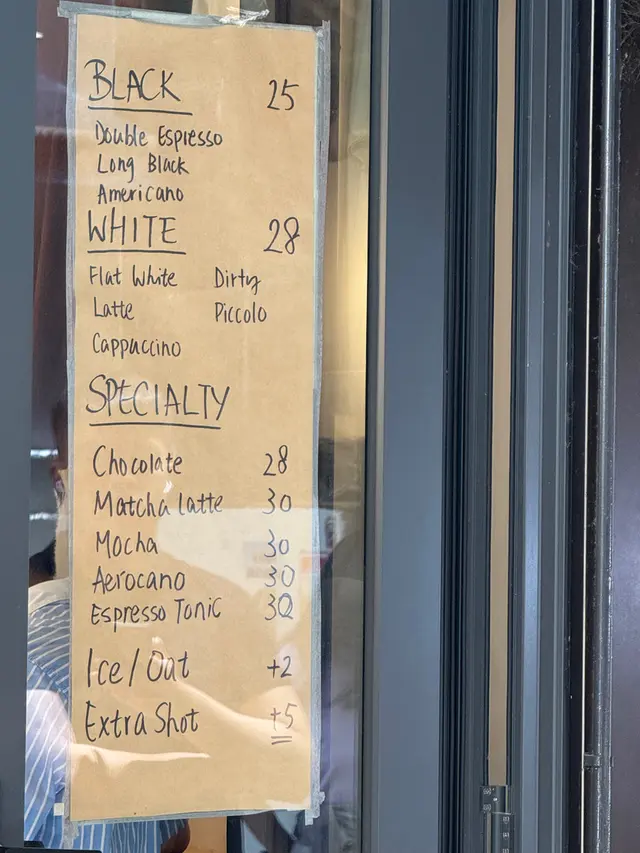 BLACK 25
Double Espresso
Long Black
Americano
WHITE 28
Flat White Dirty
Latte Piccolo
Cappuccino
SPECIALTY
Chocolate 28
Matcha latte 30
Mocha 30
Aerocano 30
Espresso Tonic 30
Ice/Oat +2
Extra Shot +5